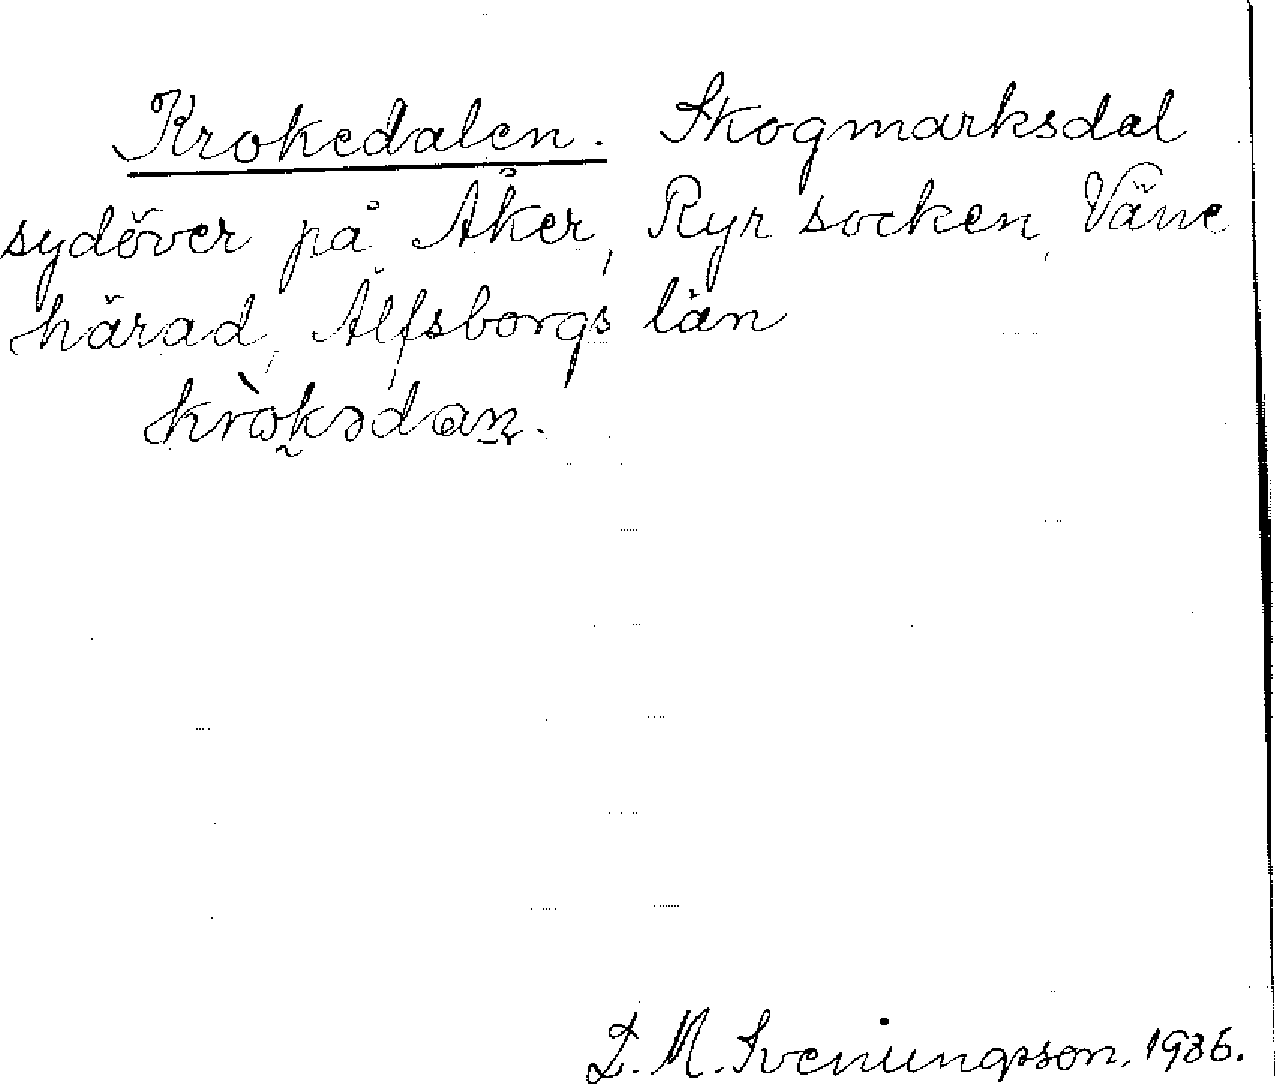 Krokedalen. Skogmarksdal
sydöver på Åker, Ryr socken, Väne
härad, Älfsborgs län
L. M. Sveningsson. 1936.